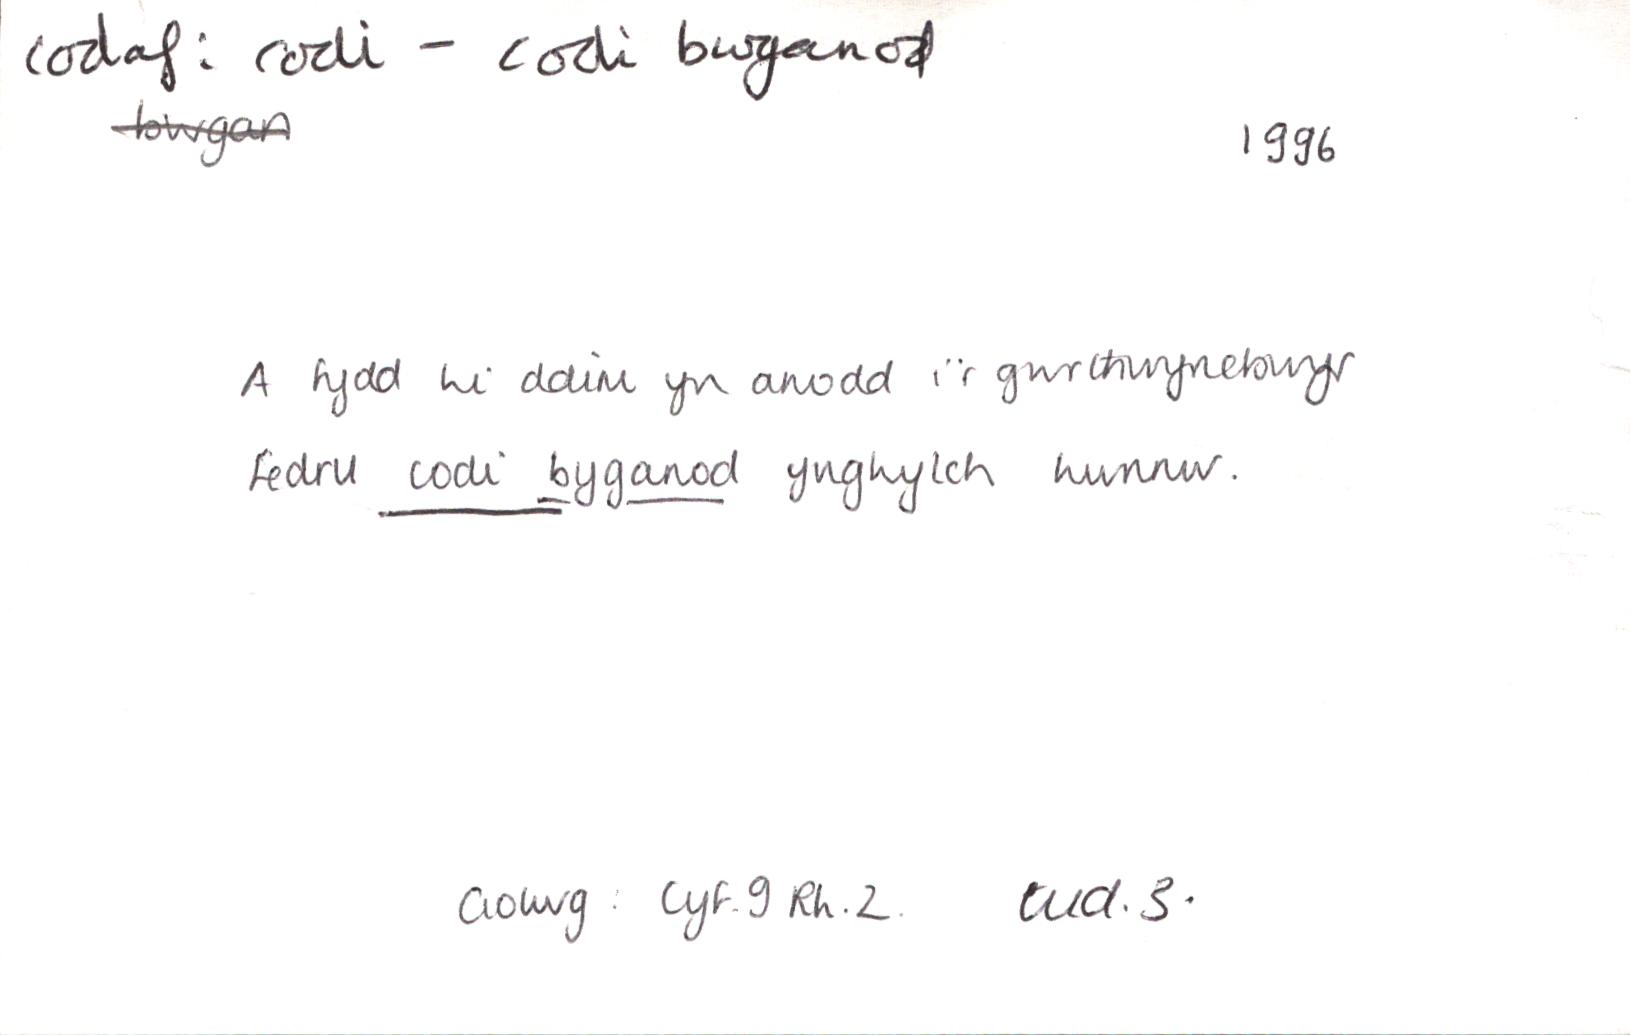 codaf: codi - codi bwganod
bwgan
1996
A fydd hi ddim yn anodd i'r gwrthwynebwyr
fedru codi byganod ynghylch hunnw.
Golwg: Cyf. 9 Rh. 2. tud. 3.